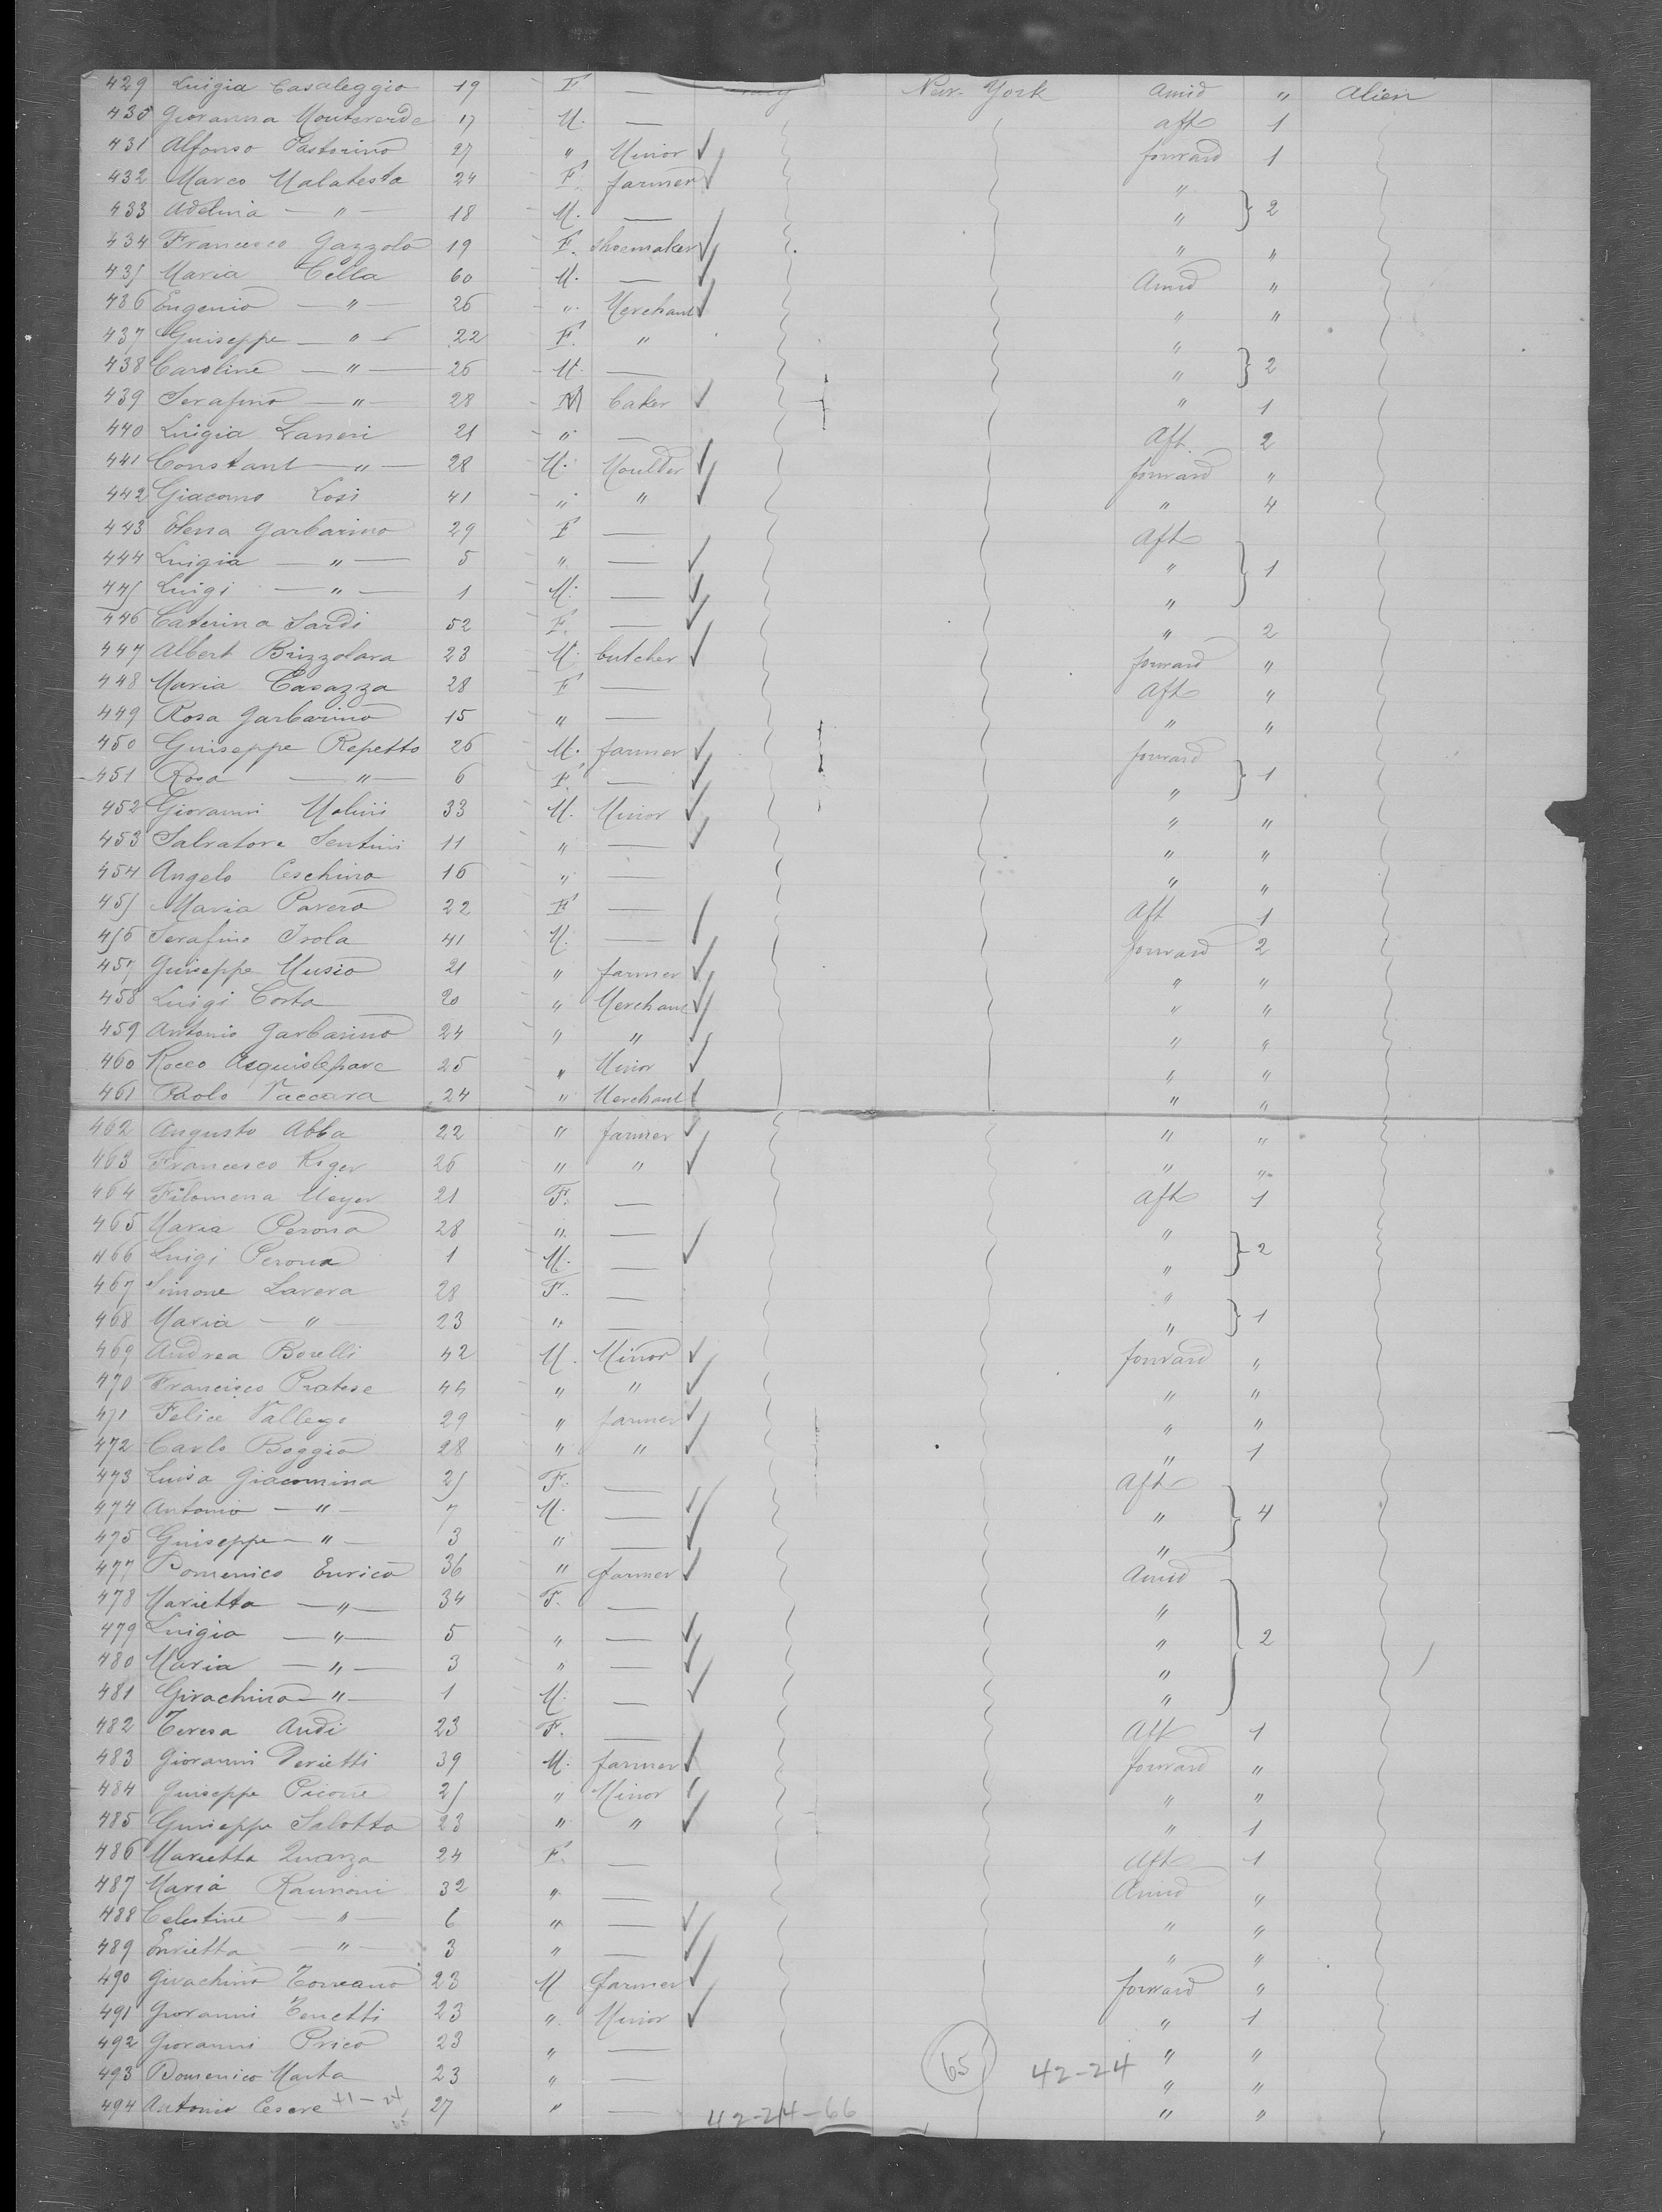 429 Luigia Casaleggio 19 F — New-York Amid " Alien
430 Giovanna Monteverde 17 M. — aft 1
431 Alfonso Pastorino 27 " Minor forward 1
432 Marco Malatesta 24 F. farmer "
433 Adelina — " — 18 M. — " } 2
434 Francesco Gazzolo 19 F. shoemaker " "
435 Maria Cella 60 M. — Amid "
436 Eugenio — " — 26 " Merchant " "
437 Guiseppe — " — 22 F. " "
438 Caroline — " — 26 M. — " } 2
439 Serafino — " — 28 M baker " 1
440 Luigia Lanneri 21 " — Aft. 2
441 Constant — " — 28 M. Moulder forward "
442 Giacomo Losi 41 " " " 4
443 Elena Garbarino 29 F — Aft
444 Luigia — " — 5 " — " } 1
445 Luigi — " — 1 M. — "
446 Caterina Sardi 52 F. — " 2
447 Albert Brizzolara 23 M. butcher forward "
448 Maria Casazza 28 F — Aft "
449 Rosa Garbarino 15 " — " "
450 Guiseppe Repetto 26 M. farmer forward
451 Rosa — " — 6 F. — " } 1
452 Giovanni Molini 33 M. Minor " "
453 Salvatore Sentini 11 " — " "
454 Angelo Ceschina 16 " — " "
455 Maria Pavero 22 F — Aft 1
456 Serafino Isola 41 M. — forward 2
457 Guiseppe Musio 21 " farmer " "
458 Luigi Costa 20 " Merchant " "
459 Antonio Garbarino 24 " " " "
460 Rocco Acquistepare 25 " Minor " "
461 Paolo Vaccara 24 " Merchant " "
462 Augusto Abba 22 " farmer " "
463 Francesco Riger 26 " " " "
464 Filomena Meyer 21 F. — aft 1
465 Maria Perona 28 " — "
466 Luigi Perona 1 M. — " } 2
467 Simone Lavera 28 F. — "
468 Maria — " — 23 " — " } 1
469 Andrea Borelli 42 M. Minor forward "
470 Francisco Pratese 44 " " " "
471 Felice Vallege 29 " farmer " "
472 Carlo Boggio 28 " " " 1
473 Luisa Giacomina 25 F. — Aft
474 Antonio — " — 7 M. — " } 4
475 Guiseppe — " — 3 " — "
477 Domenico Enrico 36 " farmer Amid
478 Marietta — " — 34 F. — "
479 Luigia — " — 5 " — " } 2
480 Maria — " — 3 " — "
481 Girachino — " — 1 M. — "
482 Teresa Audi 23 F. — Aft 1
483 Giovanni Perietti 39 M. farmer forward "
484 Guiseppe Picone 25 " Minor " "
485 Guiseppe Salotto 23 " " " 1
486 Marietta Quarza 24 F. — Aft 1
487 Maria Raimoni 32 " — Amid "
488 Celestine — " — 6 " — " "
489 Enrietta — " — 3 " — " "
490 Girachino Torreano 23 M farmer forward "
491 Giovanni Tenetti 23 " Minor " 1
492 Giovanni Prico 23 " — " "
493 Domenico Marta 23 " — 65 42-24 " "
494 Antonio Cesere 27 " — 42-24-66 " "